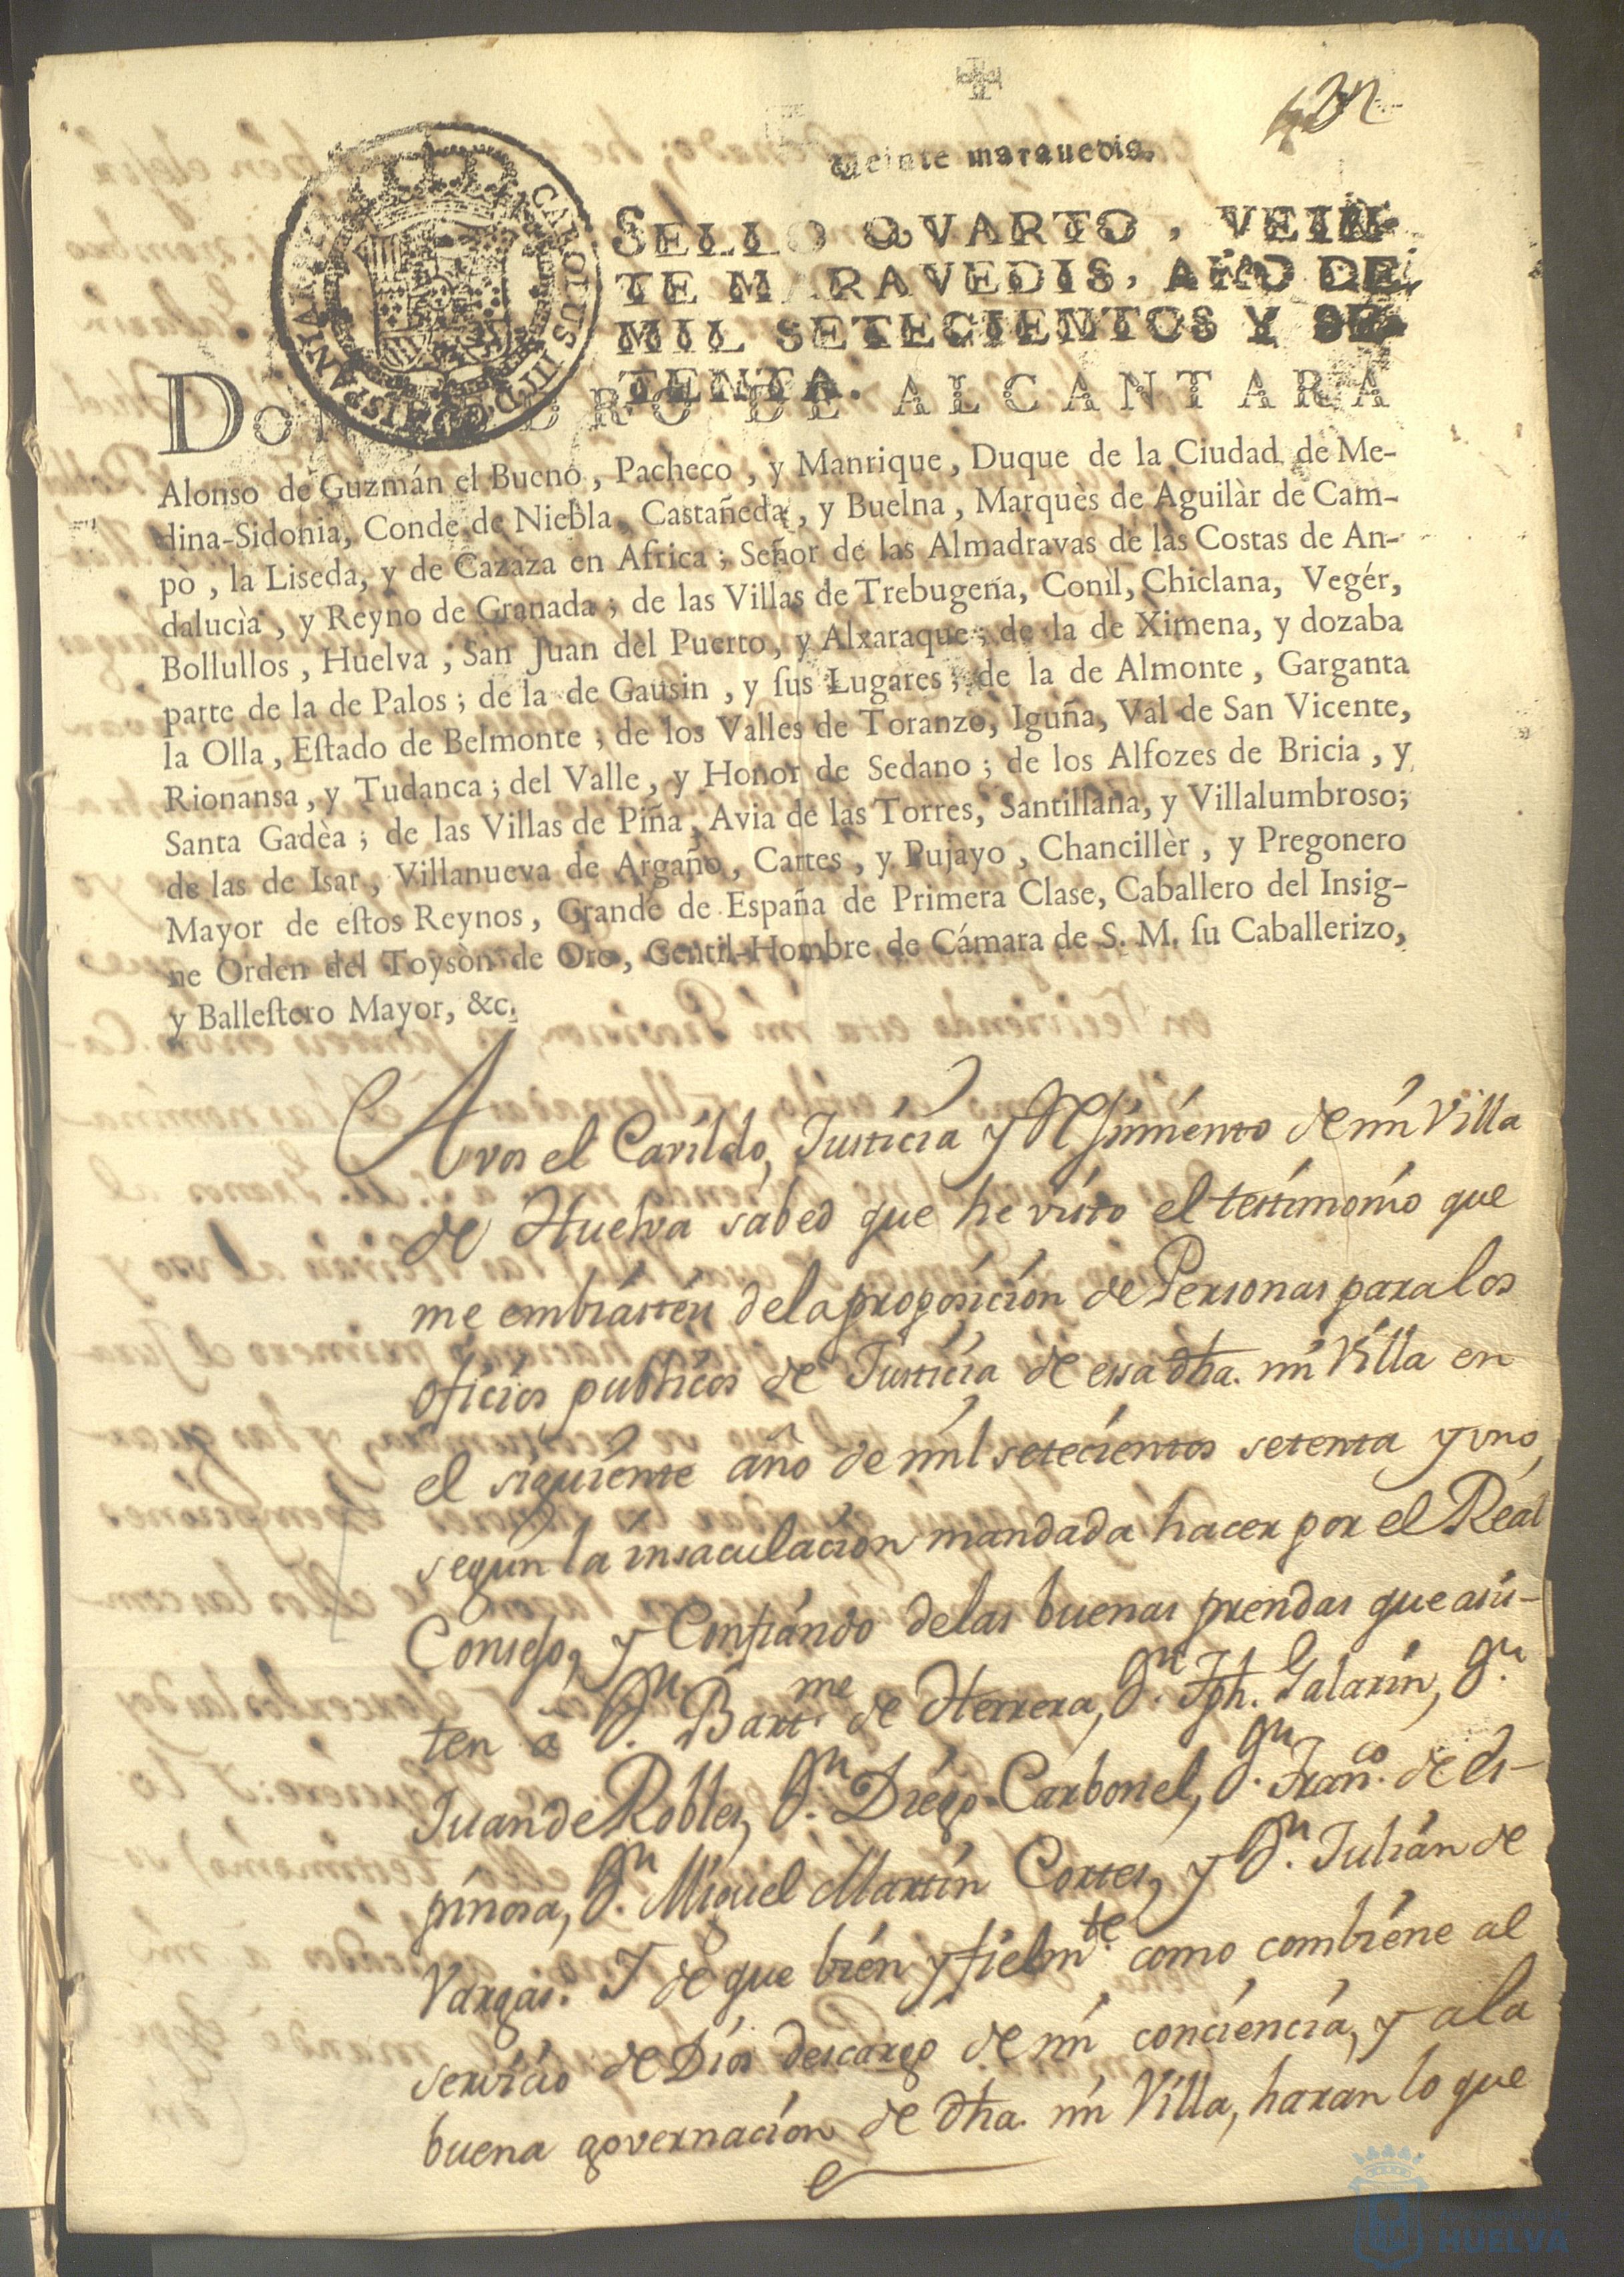 Veinte maravedis.
SELLO QVARTO, VEIN-
TE MARAVEDIS, AÑO DE
MIL SETECIENTOS Y SE-
TENTA.
CAROLUS III D G HISPANIAR
DON PEDRO DE ALCANTARA
Alonso de Guzmán el Bueno, Pacheco, y Manrique, Duque de la Ciudad de Me-
dina-Sidonia, Conde de Niebla, Castañeda, y Buelna, Marquès de Aguilàr de Cam-
pò, la Liseda, y de Cazaza en Africa; Señor de las Almadravas de las Costas de An-
dalucìa, y Reyno de Granada; de las Villas de Trebugena, Conil, Chiclana, Vegér,
Bollullos, Huelva, San Juan del Puerto, y Alxaraque; de la de Ximena, y dozaba
parte de la de Palos; de la de Gausin, y ſus Lugares; de la de Almonte, Garganta
la Olla, Eſtado de Belmonte; de los Valles de Toranzo, Iguña, Val de San Vicente,
Rionansa, y Tudanca; del Valle, y Honor de Sedano; de los Alfozes de Bricia, y
Santa Gadèa; de las Villas de Piña, Avia de las Torres, Santillana, y Villalumbroso;
de las de Isar, Villanueva de Argaño, Cartes, y Pujayo, Chancillèr, y Pregonero
Mayor de eſtos Reynos, Grande de España de Primera Clase, Caballero del Insig-
ne Orden del Toysòn de Oro, Gentil-Hombre de Cámara de S. M. ſu Caballerizo,
y Balleſtero Mayor, &c.
A vos el Cavildo, Justicia y Rejimiento de mi Villa
de Huelva sabed que he visto el testimonio que
me embiasteis de la proposicion de Personas para los
oficios publicos de Justicia de essa dha. mi Villa en
el siguiente año de mil setecientos setenta y uno,
segun la insaculacion mandada hacer por el Real
Consejo, y Confiando de las buenas prendas que asis-
ten a Dn. Bartme. de Herrera, Dn. Jph. Galarin, Dn.
Juan de Robles, Dn. Diego Carbonel, Dn. Franco. de Es-
pinosa, Dn. Miguel Martin Cortes, y Dn. Julian de
Vargas. Y de que bien y fielmte. como combiene al
servicio de Dios descargo de mi conciencia, y a la
buena governacion de dha. mi Villa, haran lo que
HUELVA